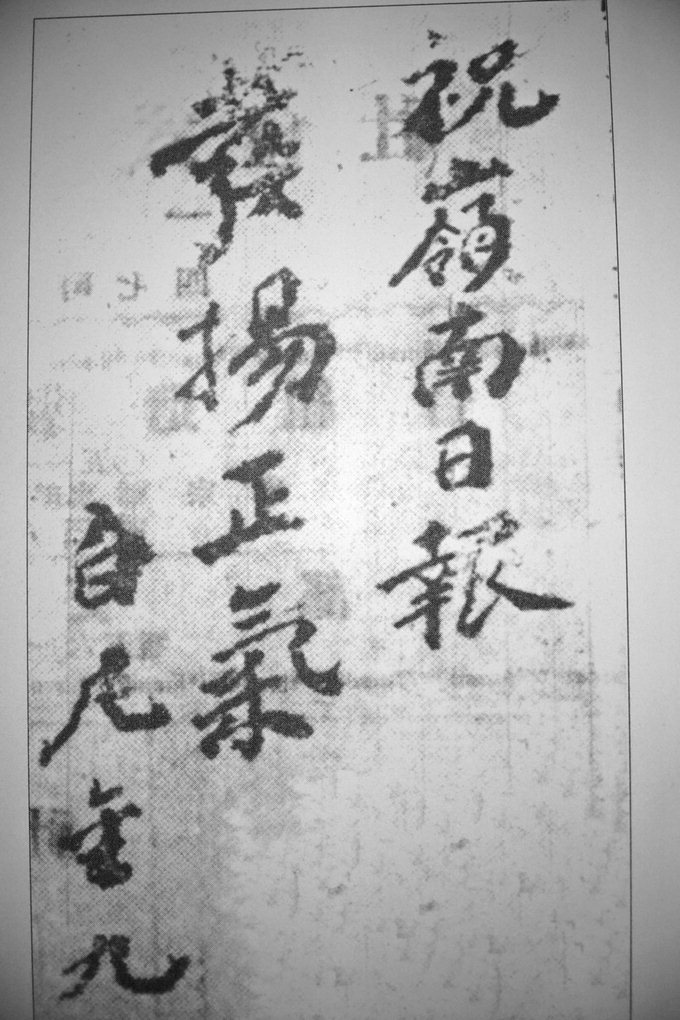 祝嶺南日報
發揚正氣
白凡金九